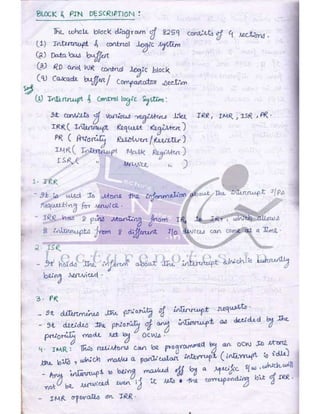 BLOCK & PIN DESCRIPTION :
The whole block diagram of 8259 consists of 4 sections.
(1) Interrupt & control logic system
(2) Data bus buffer
(3) RD and WR control logic block
(4) Cascade buffer / Comparator section
(1) Interrupt & Control logic System :
It consists of various registers like IRR, IMR, ISR, PR.
IRR ( Interrupt Request Register )
PR ( Priority Resolver /
IMR ( Interrupt Mask Register )
ISR ( " service " )
1. IRR
- It is used to store the information about the interrupt I/Ps
requesting for service.
- IRR has 8 pins starting from IR0 to IR7, which allows
8 interrupts from 8 different I/O devices can come at a time.
2. ISR
- It holds the inform about the interrupt which is currently
being serviced -
3. PR
- It determines the priority of interrupt requests.
- It decides the priority of any interrupt as decided by the
priority mode set by OCWs.
4. IMR : This register can be programmed by an OCW to store
the bits, which masks a particular interrupt ( interrupt is idle )
- Any interrupt is being masked off by a specific s/w, which will
not be serviced even if it sets the corresponding bit of IRR.
- IMR operates on IRR.